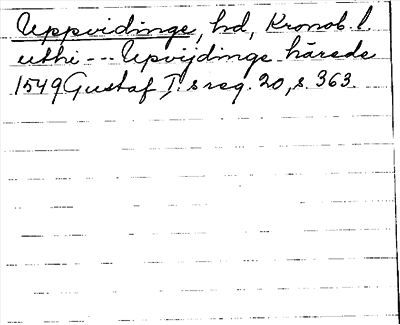 Uppvidinge, hd, Kronob. l.
uthi --- Upvijdinge härede
1549 Gustaf I:s reg. 20, s. 363.